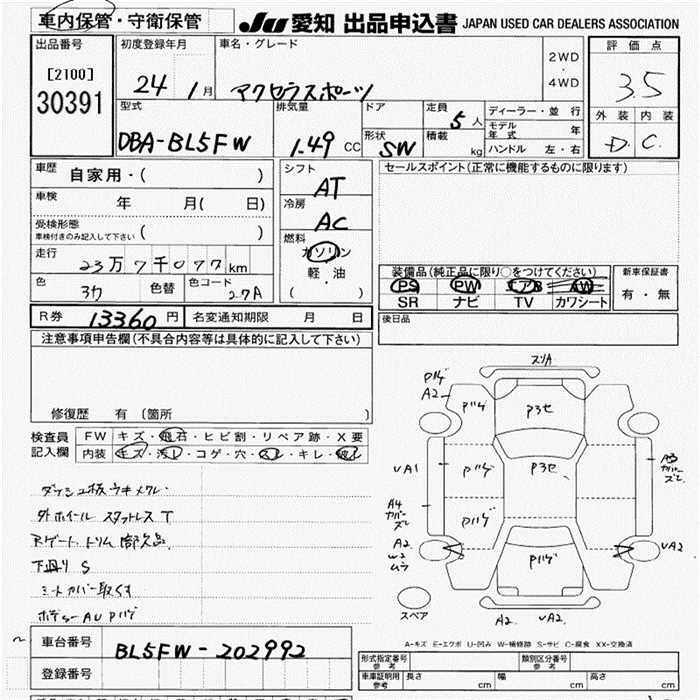 車内保管・守衛保管
JU 愛知 出品申込書 JAPAN USED CAR DEALERS ASSOCIATION
出品番号
[2100]
30391
初度登録年月
24 1月
車名・グレード
アクセラスポーツ
2WD
・
4WD
評価点
3.5
外装 内装
D. C.
型式
DBA-BL5FW
排気量
1.49 CC
ドア
形状
SW
定員
5人
積載
kg
ディーラー・並行
モデル年式 年
ハンドル 左・右
車歴
自家用・( )
車検
年 月( 日)
受検形態
車検付きのみ記入して下さい ( )
走行
23万7千077km
色
色替
色コード
27A
シフト
AT
冷房
AC
燃料
ガソリン
軽・油
( )
セールスポイント(正常に機能するものに限ります)
装備品(純正品に限り○をつけてください)
PS PW エアB AW
SR ナビ TV カワシート
新車保証書
有・無
R券 13360円
名変通知期限 月 日
後日品
注意事項申告欄(不具合内容等は具体的に記入して下さい)
修復歴 有 〔箇所 〕
検査員
記入欄
FW キズ・飛石・ヒビ割・リペア跡・X要
内装 キズ・汚レ・コゲ・穴・スレ・キレ・破レ
ダッシュ板ウキメクレ
外ホイール スタットレスT
Rゲートトリム部欠品
下廻りS
シートカバー取くず
ボデーAUPハゲ
スリA
Pハゲ
A2
Pハゲ
P3セ
UA1
Pハゲ
P3セ
A3
カバーズレ
A4
カバーズレ
Pハゲ
A2
W2
ムラ
Pハゲ
UA2
スペア
A2
UA2
A-キズ E-エクボ U-凹み W-補修跡 S-サビ C-腐食 XX-交換済
車台番号
BL5FW-202992
登録番号
形式指定番号
参考
類別区分番号
参考
車庫証明用
参考
長さ cm
幅 cm
高さ cm